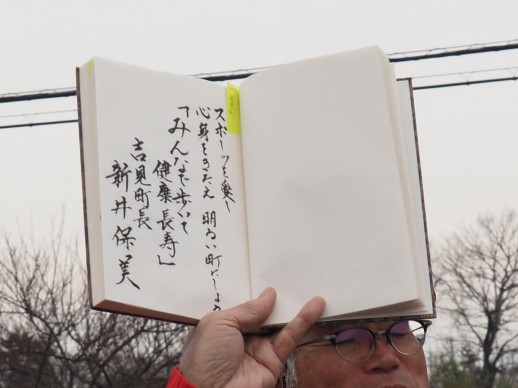 スポーツを愛し
心身をきたえ 明るい町にしよう
「みんなで歩いて
健康長寿」
吉見町長
新井保美